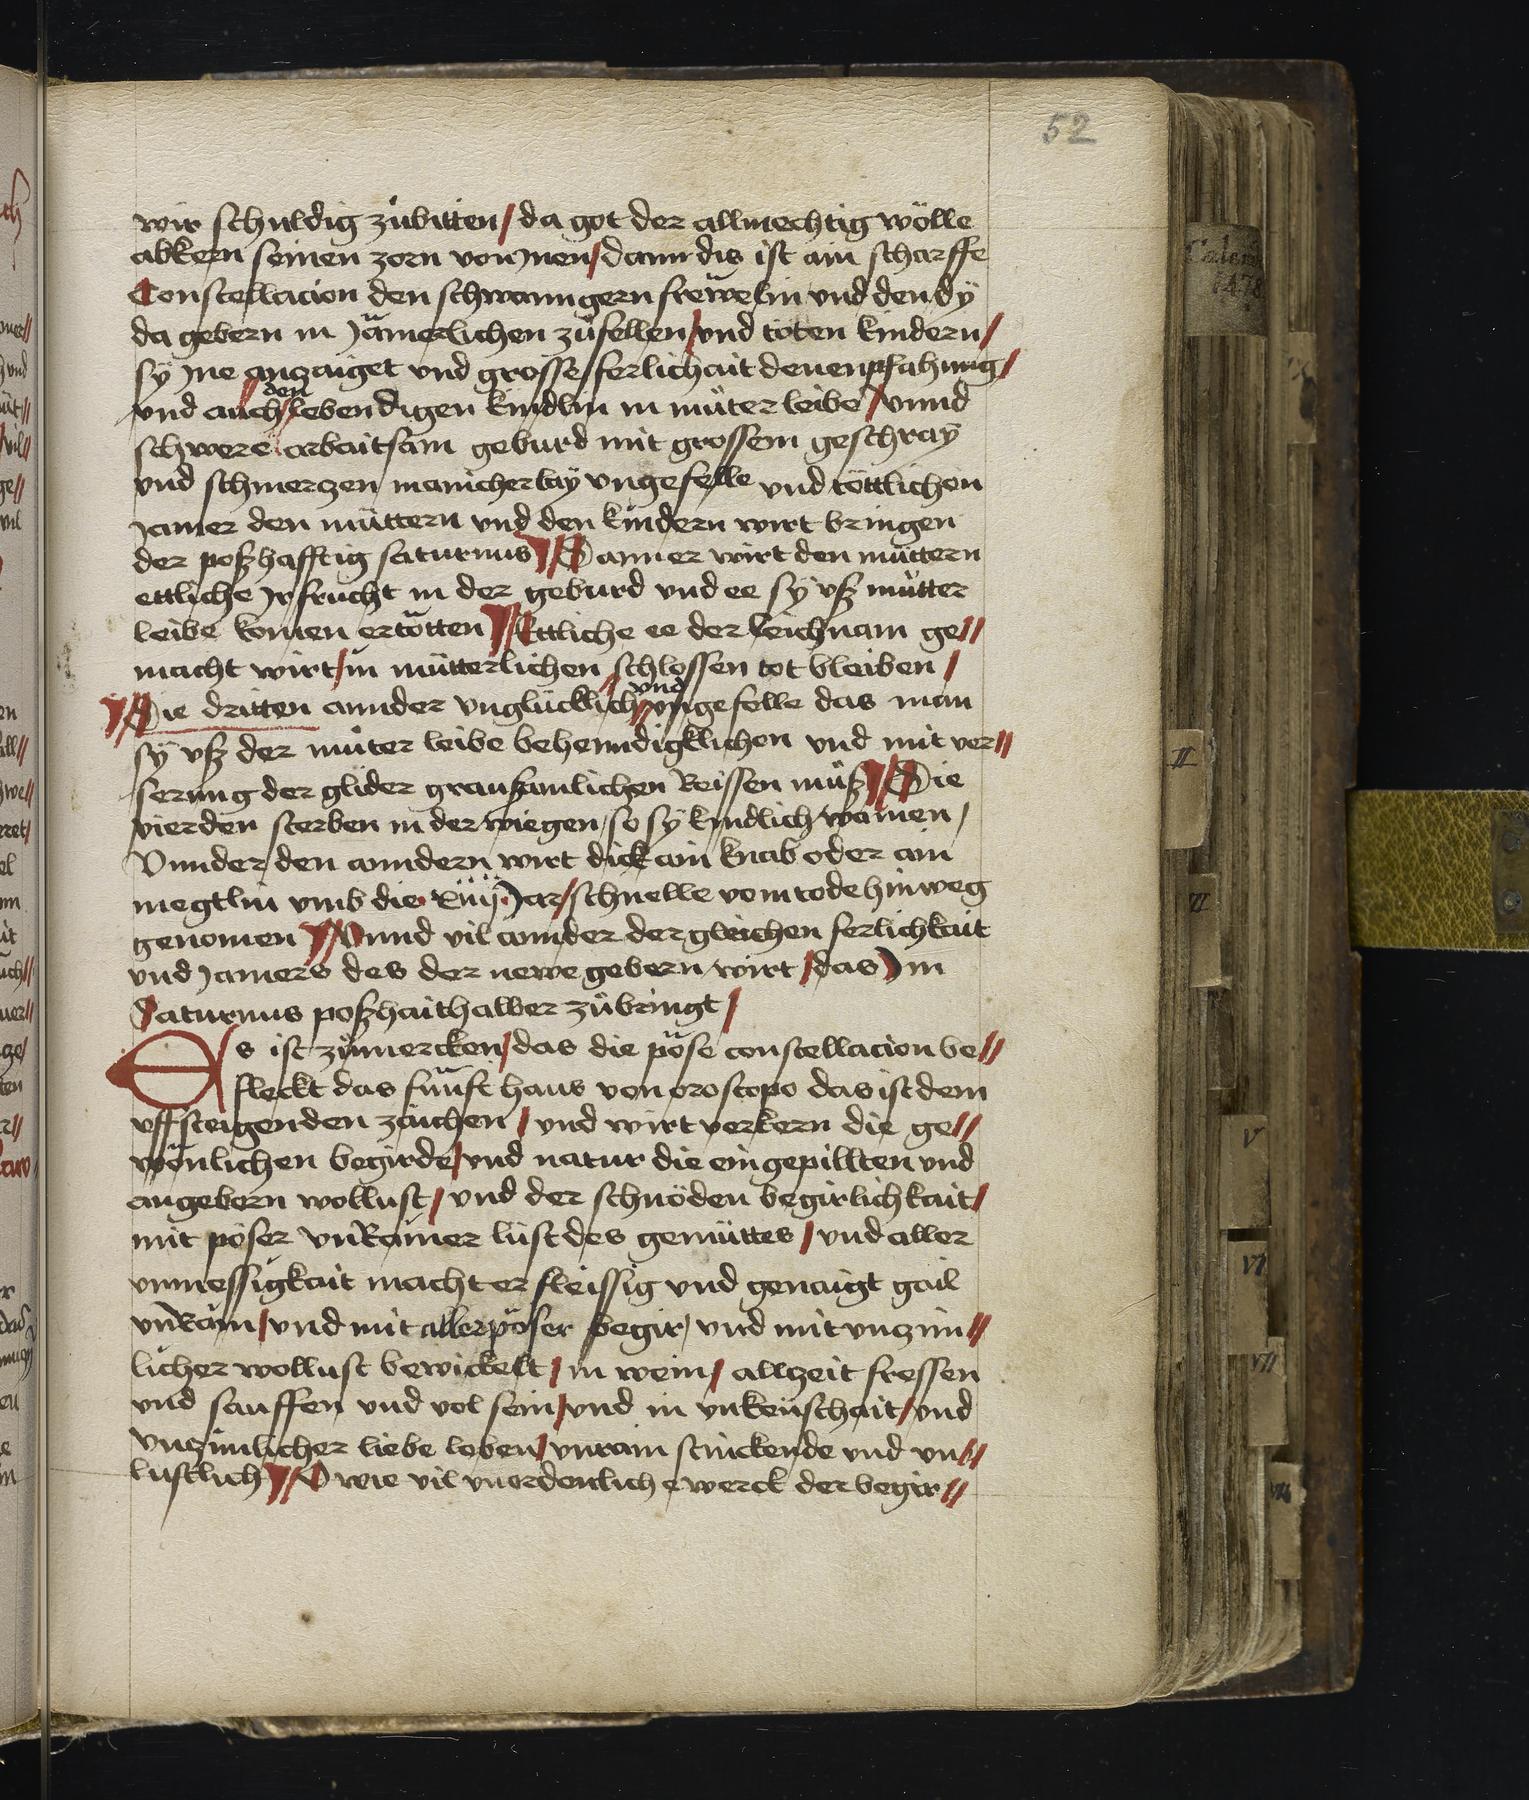 52
wir schuldig zůbitten / da got der allmechtig wölle
abkern seinen zorn von Jnen / dann dis ist ain scharffe
Constellacion den schwanngern frëwelin vnd den dÿ
da gebern in Jämerlichen zůfellen / vnd toten kindern /
sÿ Jne anzaiget vnd grosse ferlichait den enpfahung /
den
vnd auch // lebendigen kindlin in můter leibe / vnnd
schwere arbaitsam geburd mit grossem geschraÿ
vnd schmerzen manicherlaÿ vngefelle vnd töttlichen
Jamer den müttern vnd den kindern wirt bringen
der poßhafftig saturnus Dann er wirt den müttern
ettliche Jr frucht in der geburd vnd ee sÿ vß mütter
leibe komen ertötten Ettliche ee der leichnam ge//
macht wirt / in mütterlichen schlossen tot bleiben /
vnd
Die dritten annder vnglücklich // vngefelle das man
sÿ vß der můter leibe behenndigklichen vnd mit ver//
serung der glider graußamlichen Reissen můß Die
vierden sterben in der wiegen / so sÿ kindlich wainen /
Vnnder den anndern wirt dick ain knab oder ain
megtlin vmb die xiiij Jar / schnelle vom tode hinweg
genomen Vnnd vil annder der gleichen ferlichkait
vnd Jamers des der newe gebern wirt / das Jm
Saturnus poßhait halber zůbringt /
Es ist zůmercken / das die pöse constellacion be//
fleckt das fünft haus von oroscopo das ist dem
vffsteigenden zaichen / vnd wirt verkern die ge//
wönlichen begirde / vnd natur die eingepillten vnd
angebern wollust / vnd der schnöden begirlichkait /
mit pöser vnRainer lust des gemüttes / vnd aller
vnmessigkait macht er fleissig vnd genaigt gail
vnRain / vnd mit aller pöser begir / vnd mit vnzim//
licher wollust bewickelt / in wein / allzeit fressen
vnd sauffen vnd vol sein / vnd in vnkeüschait / vnd
vnzimlicher liebe leben / vnrain stinckende vnd vn//
lustlich O wie vil vnordenliche werck der begir//
II
VI
V
VI
VII